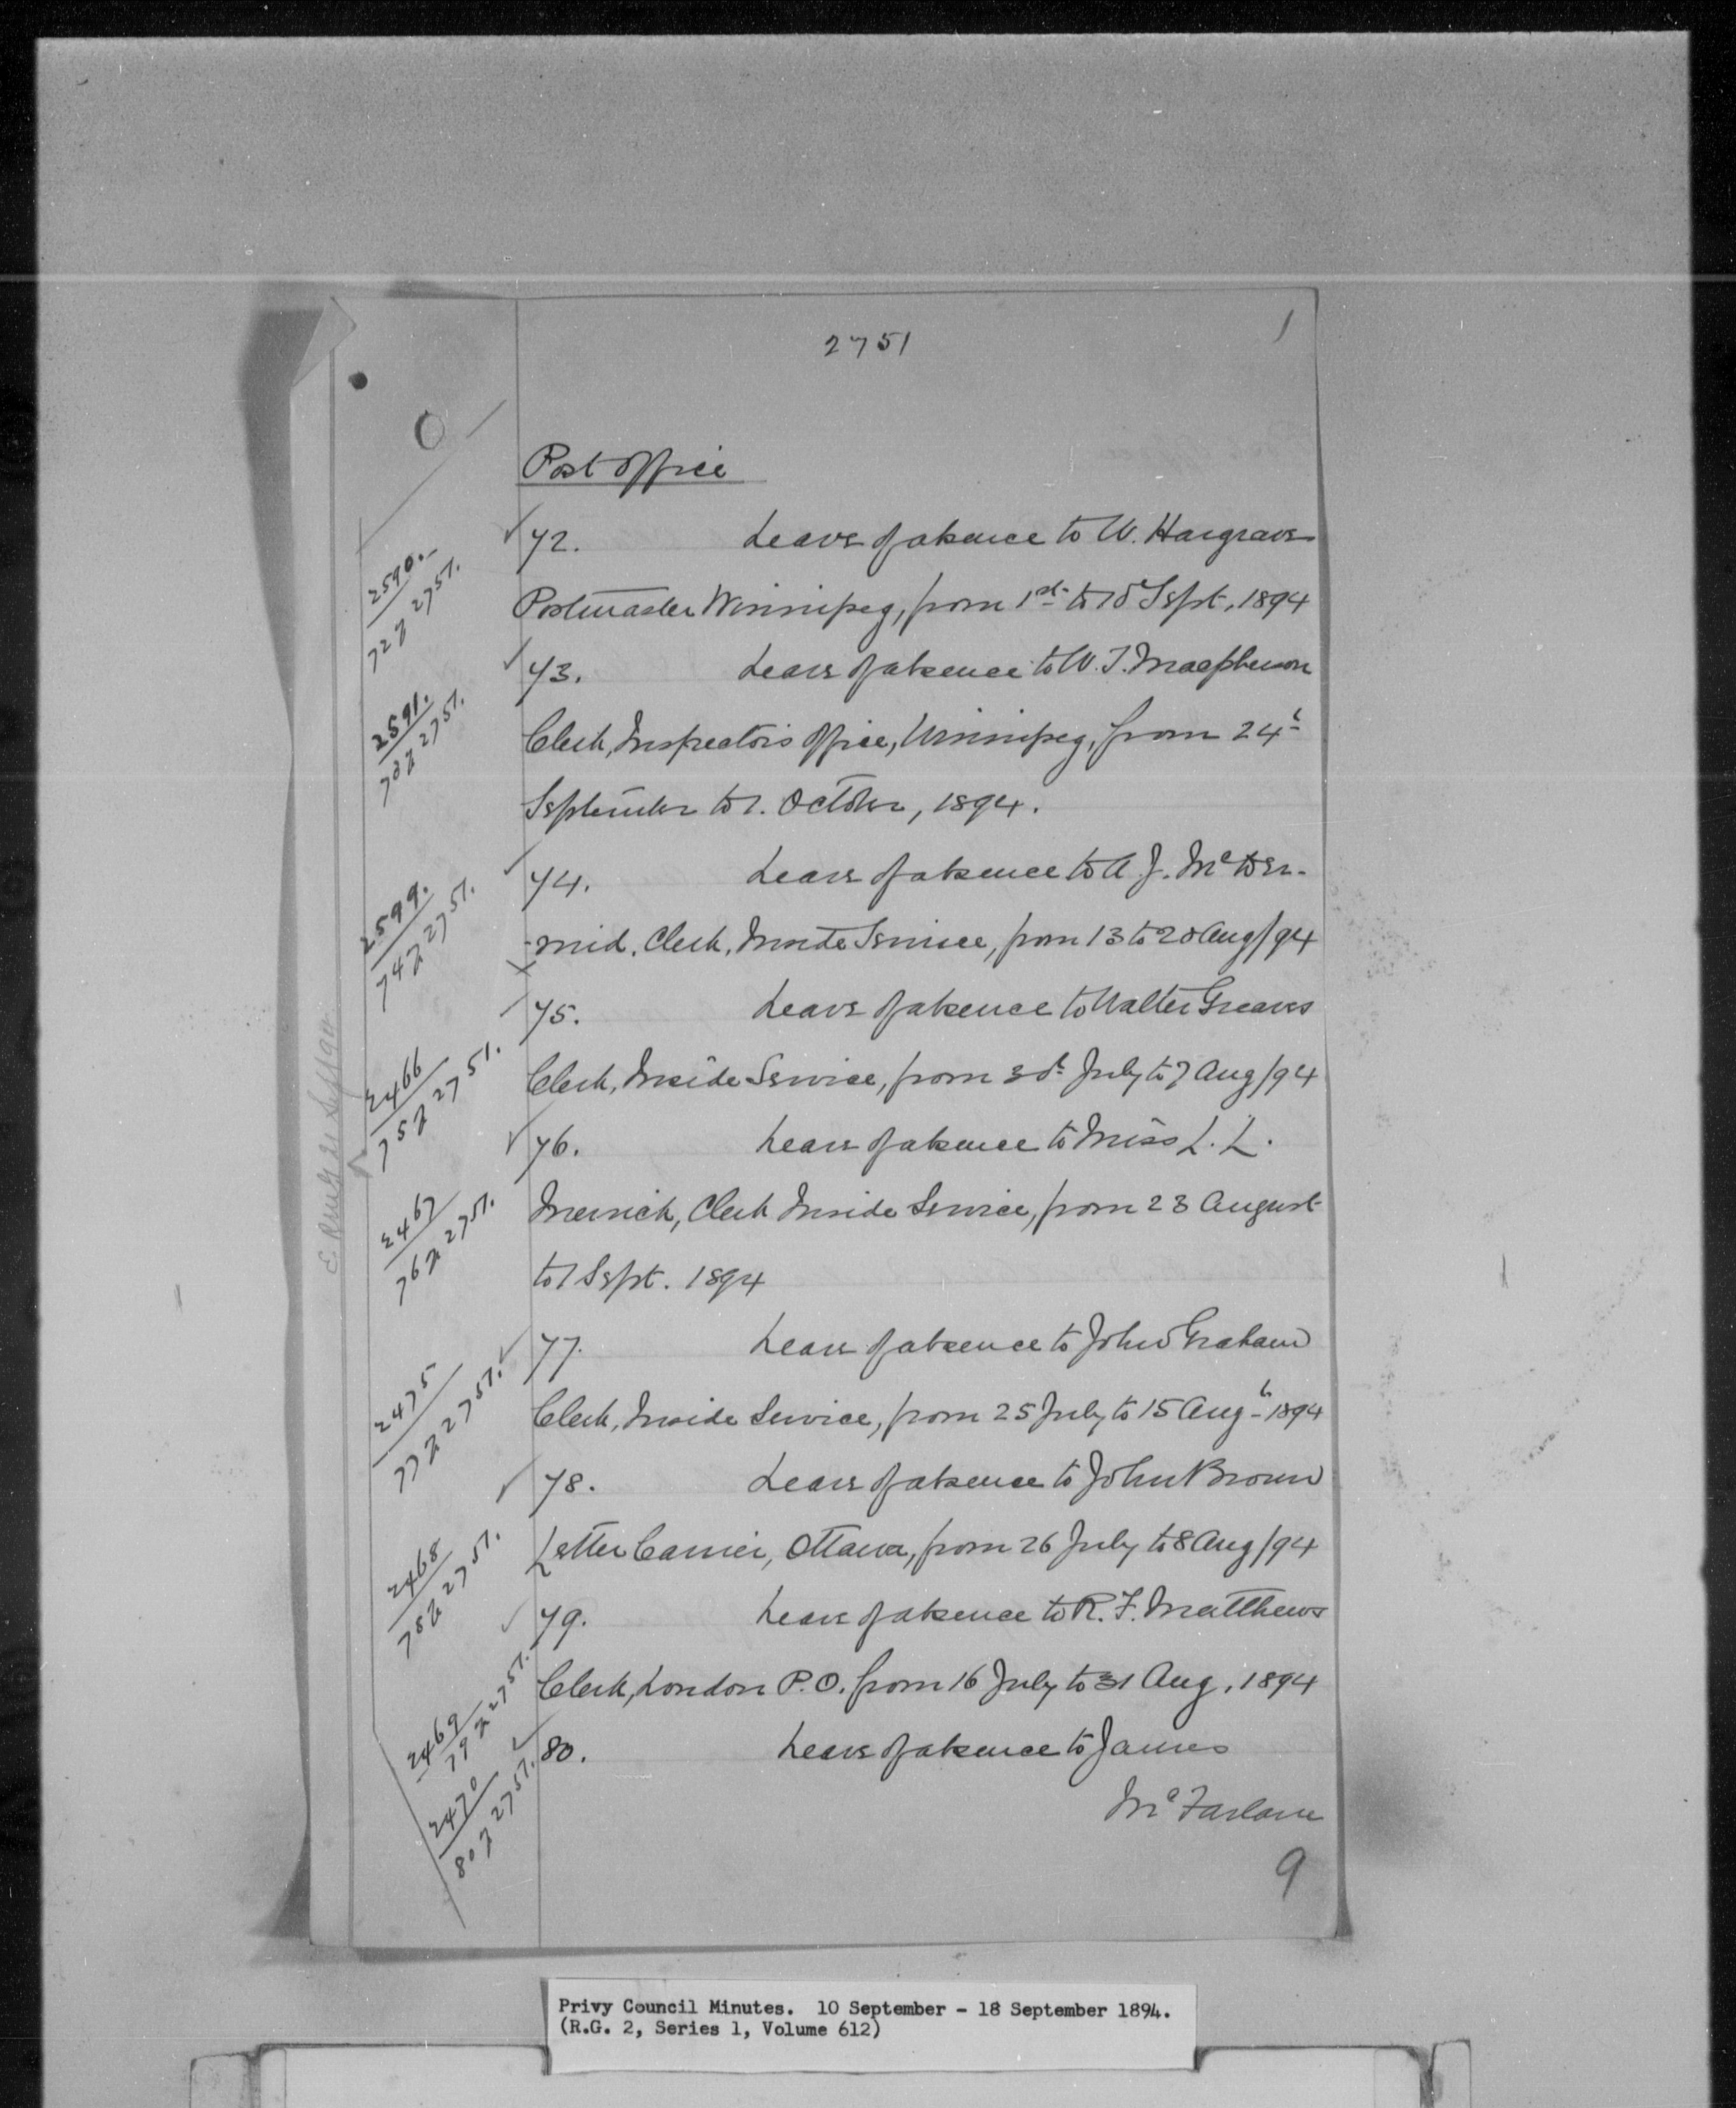 2751
1
Post Office
72. Leave of absence to W. Hargrave
Postmaster Winnipeg, from 1st to 10 Sept, 1894
73. Leave of absence to W. J. Macpherson
Clerk, Inspectors Office, Winnipeg, from 24th
September to 1. October, 1894.
74. Leave of absence to A. J. McDer-
-mid, Clerk, Inside Service, from 13 to 20 Aug/94
75. Leave of absence to Walter Greaves
Clerk, Inside Service, from 30th July to 7 Aug/94
76. Leave of absence to Miss L. L.
Merrick, Clerk Inside Service, from 23 August
to 1 Sept. 1894
77. Leave of absence to John Graham
Clerk, Inside Service, from 25 July to 15 Augth 1894
78. Leave of absence to John Brown
Letter Carrier, Ottawa, from 26 July to 8 Aug/94
79. Leave of absence to R. F. Matthews
Clerk, London P.O. from 16 July to 31 Aug, 1894
80. Leave of absence to James
McFarlane
9
2590.
72 2751.
2591.
73 2751.
2599.
74 2751.
2466
75 2751.
2467
76 2751.
2475
77 2751.
2468
78 2751.
2469
79 2751.
2470
80 2751.
Privy Council Minutes. 10 September - 18 September 1894.
(R.G. 2, Series 1, Volume 612)